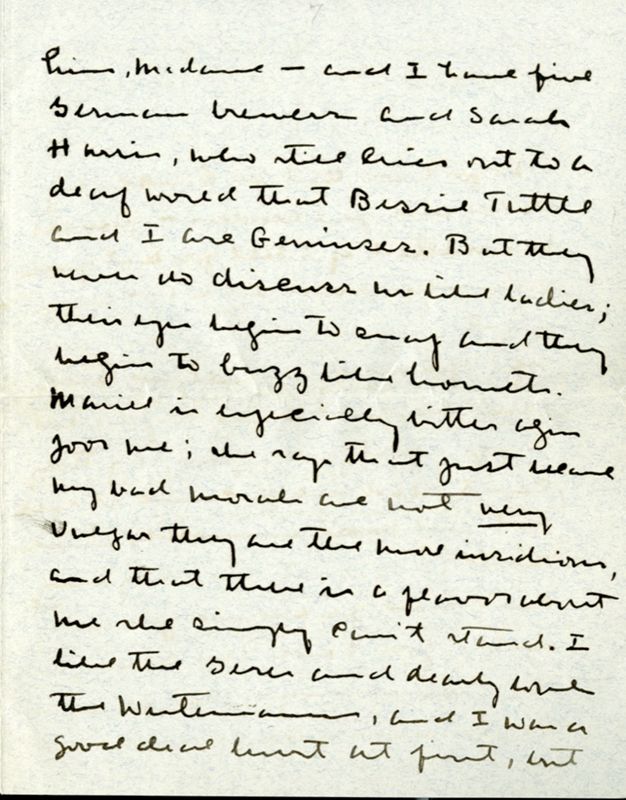 7
him, Madame — and I have five
German brewers and Sarah
Harris, who still cries out to a
deaf world that Bessie Tuttle
and I are Geniuses. But they
never do discuss us like ladies;
their eyes begin to snap and they
begin to buzz like hornets.
Mariel is especially bitter agin
poor me; she says that just because
my bad morals are not very
vulgar they are the more insidious,
and that there is a flavor about
me she simply can't stand. I
like the Geres and dearly love
the Westermanns, and I was a
good deal hurt at first, but